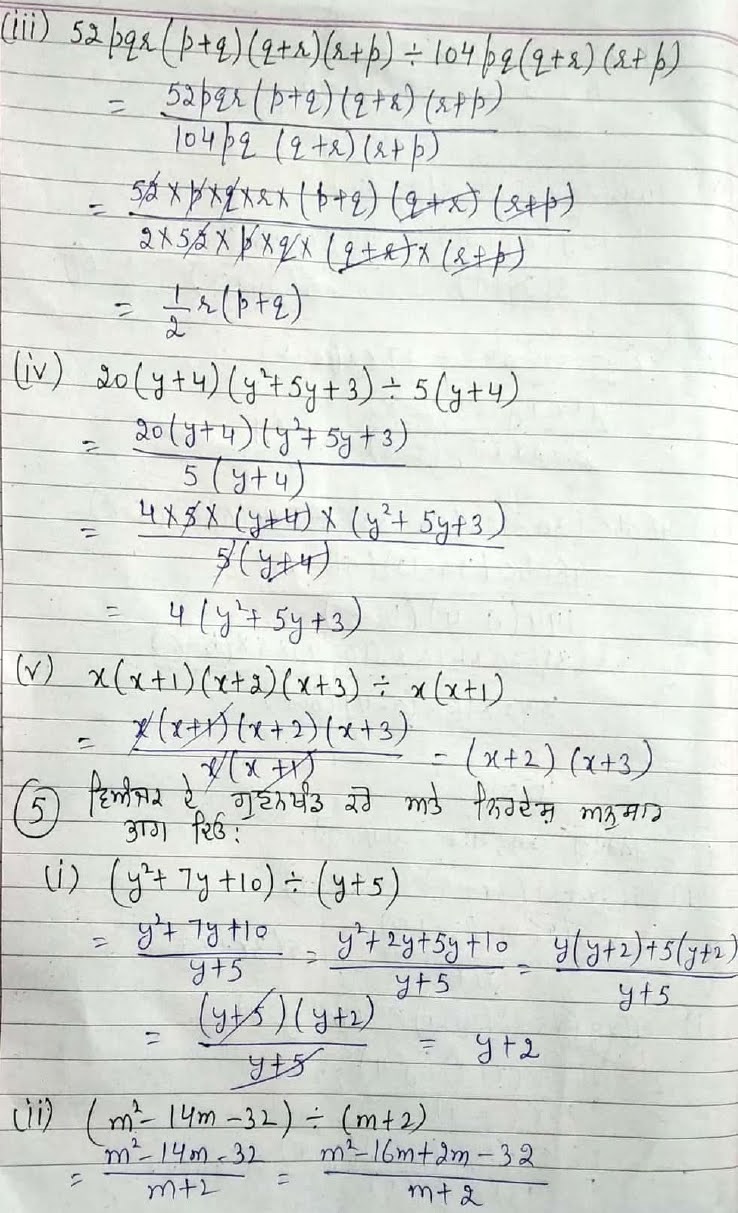 (iii) 52pqr(p+q)(q+r)(r+p) ÷ 104pq(q+r)(r+p)
= 52pqr(p+q)(q+r)(r+p)
104pq (q+r)(r+p)
= 52×p×q×r×(p+q)(q+r)(r+p)
2×52×p×q×(q+r)×(r+p)
= 1/2 r(p+q)
(iv) 20(y+4)(y²+5y+3) ÷ 5(y+4)
= 20(y+4)(y²+5y+3)
5(y+4)
= 4×5×(y+4)×(y²+5y+3)
5(y+4)
= 4(y²+5y+3)
(v) x(x+1)(x+2)(x+3) ÷ x(x+1)
= x(x+1)(x+2)(x+3) = (x+2)(x+3)
x(x+1)
5 ਵਿਅੰਜਕ ਦੇ ਗੁਣਨਖੰਡ ਕਰੋ ਅਤੇ ਨਿਰਦੇਸ਼ ਅਨੁਸਾਰ
ਭਾਗ ਦਿਓ:
(i) (y²+7y+10) ÷ (y+5)
= y²+7y+10 = y²+2y+5y+10 = y(y+2)+5(y+2)
y+5 y+5 y+5
= (y+5)(y+2) = y+2
y+5
(ii) (m²-14m-32) ÷ (m+2)
= m²-14m-32 = m²-16m+2m-32
m+2 m+2